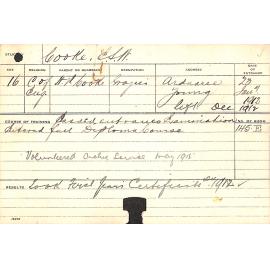 STUDENT Cooke, E.S.W
AGE RELIGION PARENT OR GUARDIAN OCCUPATION ADDRESS DATE OF ENTRANCE
16 C of Eng Cooke Grazier Young 22 Jan 1912
Left Dec 1912
COURSE OF TRAINING Passed entrance Examination NO. IN BOOK
Entered full Diploma Course 145 E
Volunteered Active Service May 1915
RESULTS Took First Year Certificate 1912